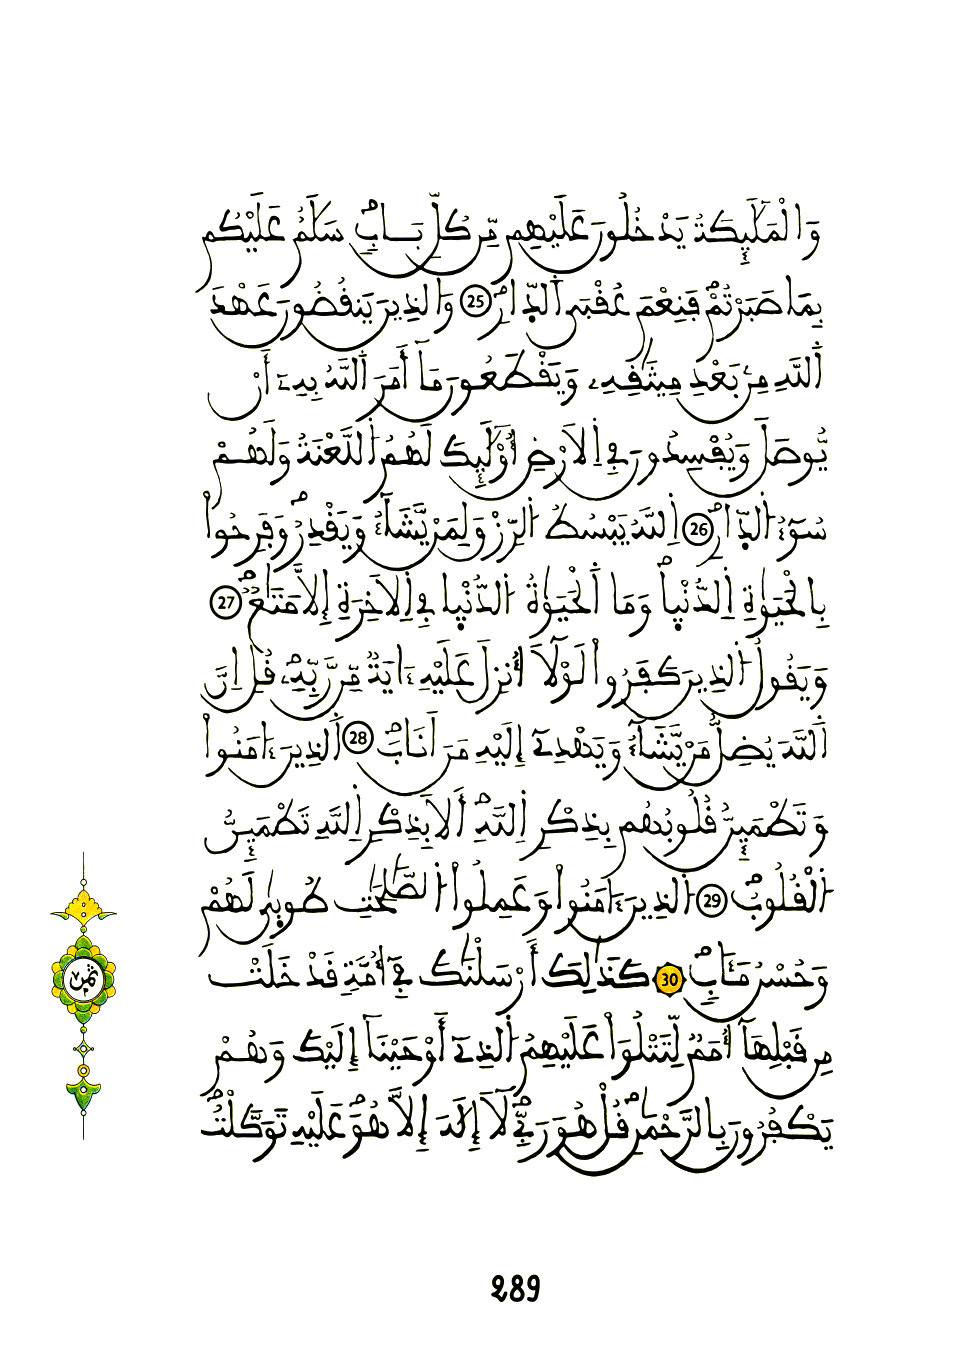 وَالْمَلَٰٓئِكَةُ يَدْخُلُونَ عَلَيْهِم مِّن كُلِّ بَابٖ سَلَٰمٌ عَلَيْكُم
بِمَا صَبَرْتُمْۖ فَنِعْمَ عُقْبَى اَ۬لدّ۪ارِۖ 25 وَالذِينَ يَنقُضُونَ عَهْدَ
اَ۬للَّهِ مِنۢ بَعْدِ مِيثَٰقِهِۦ وَيَقْطَعُونَ مَآ أَمَرَ اَ۬للَّهُ بِهِۦٓ أَنْ
يُّوصَلَ وَيُفْسِدُونَ فِے اِ۬لَارْضِ أُوْلَٰٓئِكَ لَهُمُ اُ۬للَّعْنَةُ وَلَهُمْ
سُوٓءُ اُ۬لدّ۪ارِۖ 26 اِ۬للَّهُ يَبْسُطُ اُ۬لرِّزْقَ لِمَنْ يَّشَآءُ وَيَقْدِرُۖ وَفَرِحُواْ
بِالْحَيَوٰةِ اِ۬لدُّنْي۪اۖ وَمَا اَ۬لْحَيَوٰةُ اُ۬لدُّنْي۪ا فِے اِ۬لَاخِرَةِ إِلَّا مَتَٰعٞۖ 27
وَيَقُولُ اُ۬لذِينَ كَفَرُواْ لَوْلَآ أُنزِلَ عَلَيْهِ ءَايَةٞ مِّن رَّبِّهِۦۖ قُلِ اِنَّ
اَ۬للَّهَ يُضِلُّ مَنْ يَّشَآءُ وَيَهْدِےٓ إِلَيْهِ مَنَ اَنَابَۖ 28 اَ۬لذِينَ ءَامَنُواْ
وَتَطْمَئِنُّ قُلُوبُهُم بِذِكْرِ اِ۬للَّهِۖ أَلَا بِذِكْرِ اِ۬للَّهِ تَطْمَئِنُّ
اُ۬لْقُلُوبُۖ 29 اُ۬لذِينَ ءَامَنُواْ وَعَمِلُواْ اُ۬لصَّٰلِحَٰتِ طُوب۪ىٰ لَهُمْ
وَحُسْنُ مَـَٔابٖۖ 30 كَذَٰلِكَ أَرْسَلْنَٰكَ فِےٓ أُمَّةٖ قَدْ خَلَتْ
مِن قَبْلِهَآ أُمَمٞ لِّتَتْلُوَاْ عَلَيْهِمُ اُ۬لذِےٓ أَوْحَيْنَآ إِلَيْكَ وَهُمْ
يَكْفُرُونَ بِالرَّحْمَٰنِۖ قُلْ هُوَ رَبِّےۖ لَآ إِلَٰهَ إِلَّا هُوَۖ عَلَيْهِ تَوَكَّلْتُۖ
ثمن
289